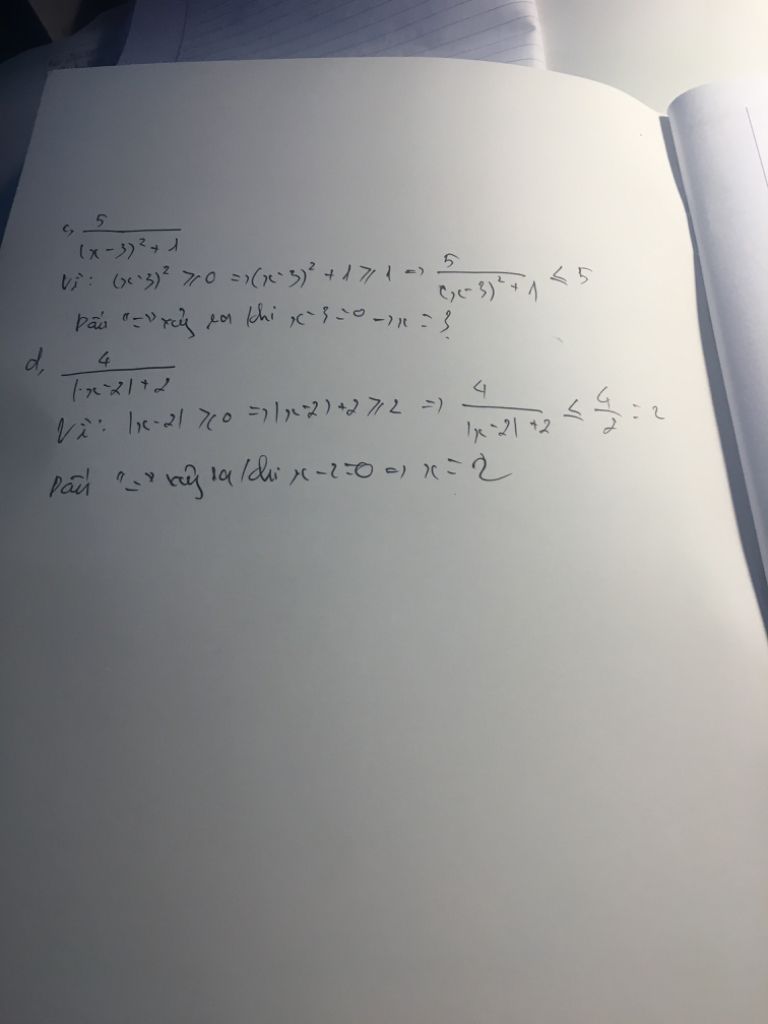 c, 5/((x-3)²+1)
Vì: (x-3)² ≥ 0 => (x-3)² + 1 ≥ 1 => 5/((x-3)²+1) ≤ 5
Dấu "=" xảy ra khi x-3=0 → x = 3
d, 4/(|x-2|+2)
Vì: |x-2| ≥ 0 => |x-2|+2 ≥ 2 => 4/(|x-2|+2) ≤ 4/2 = 2
Dấu "=" xảy ra khi x-2=0 => x = 2